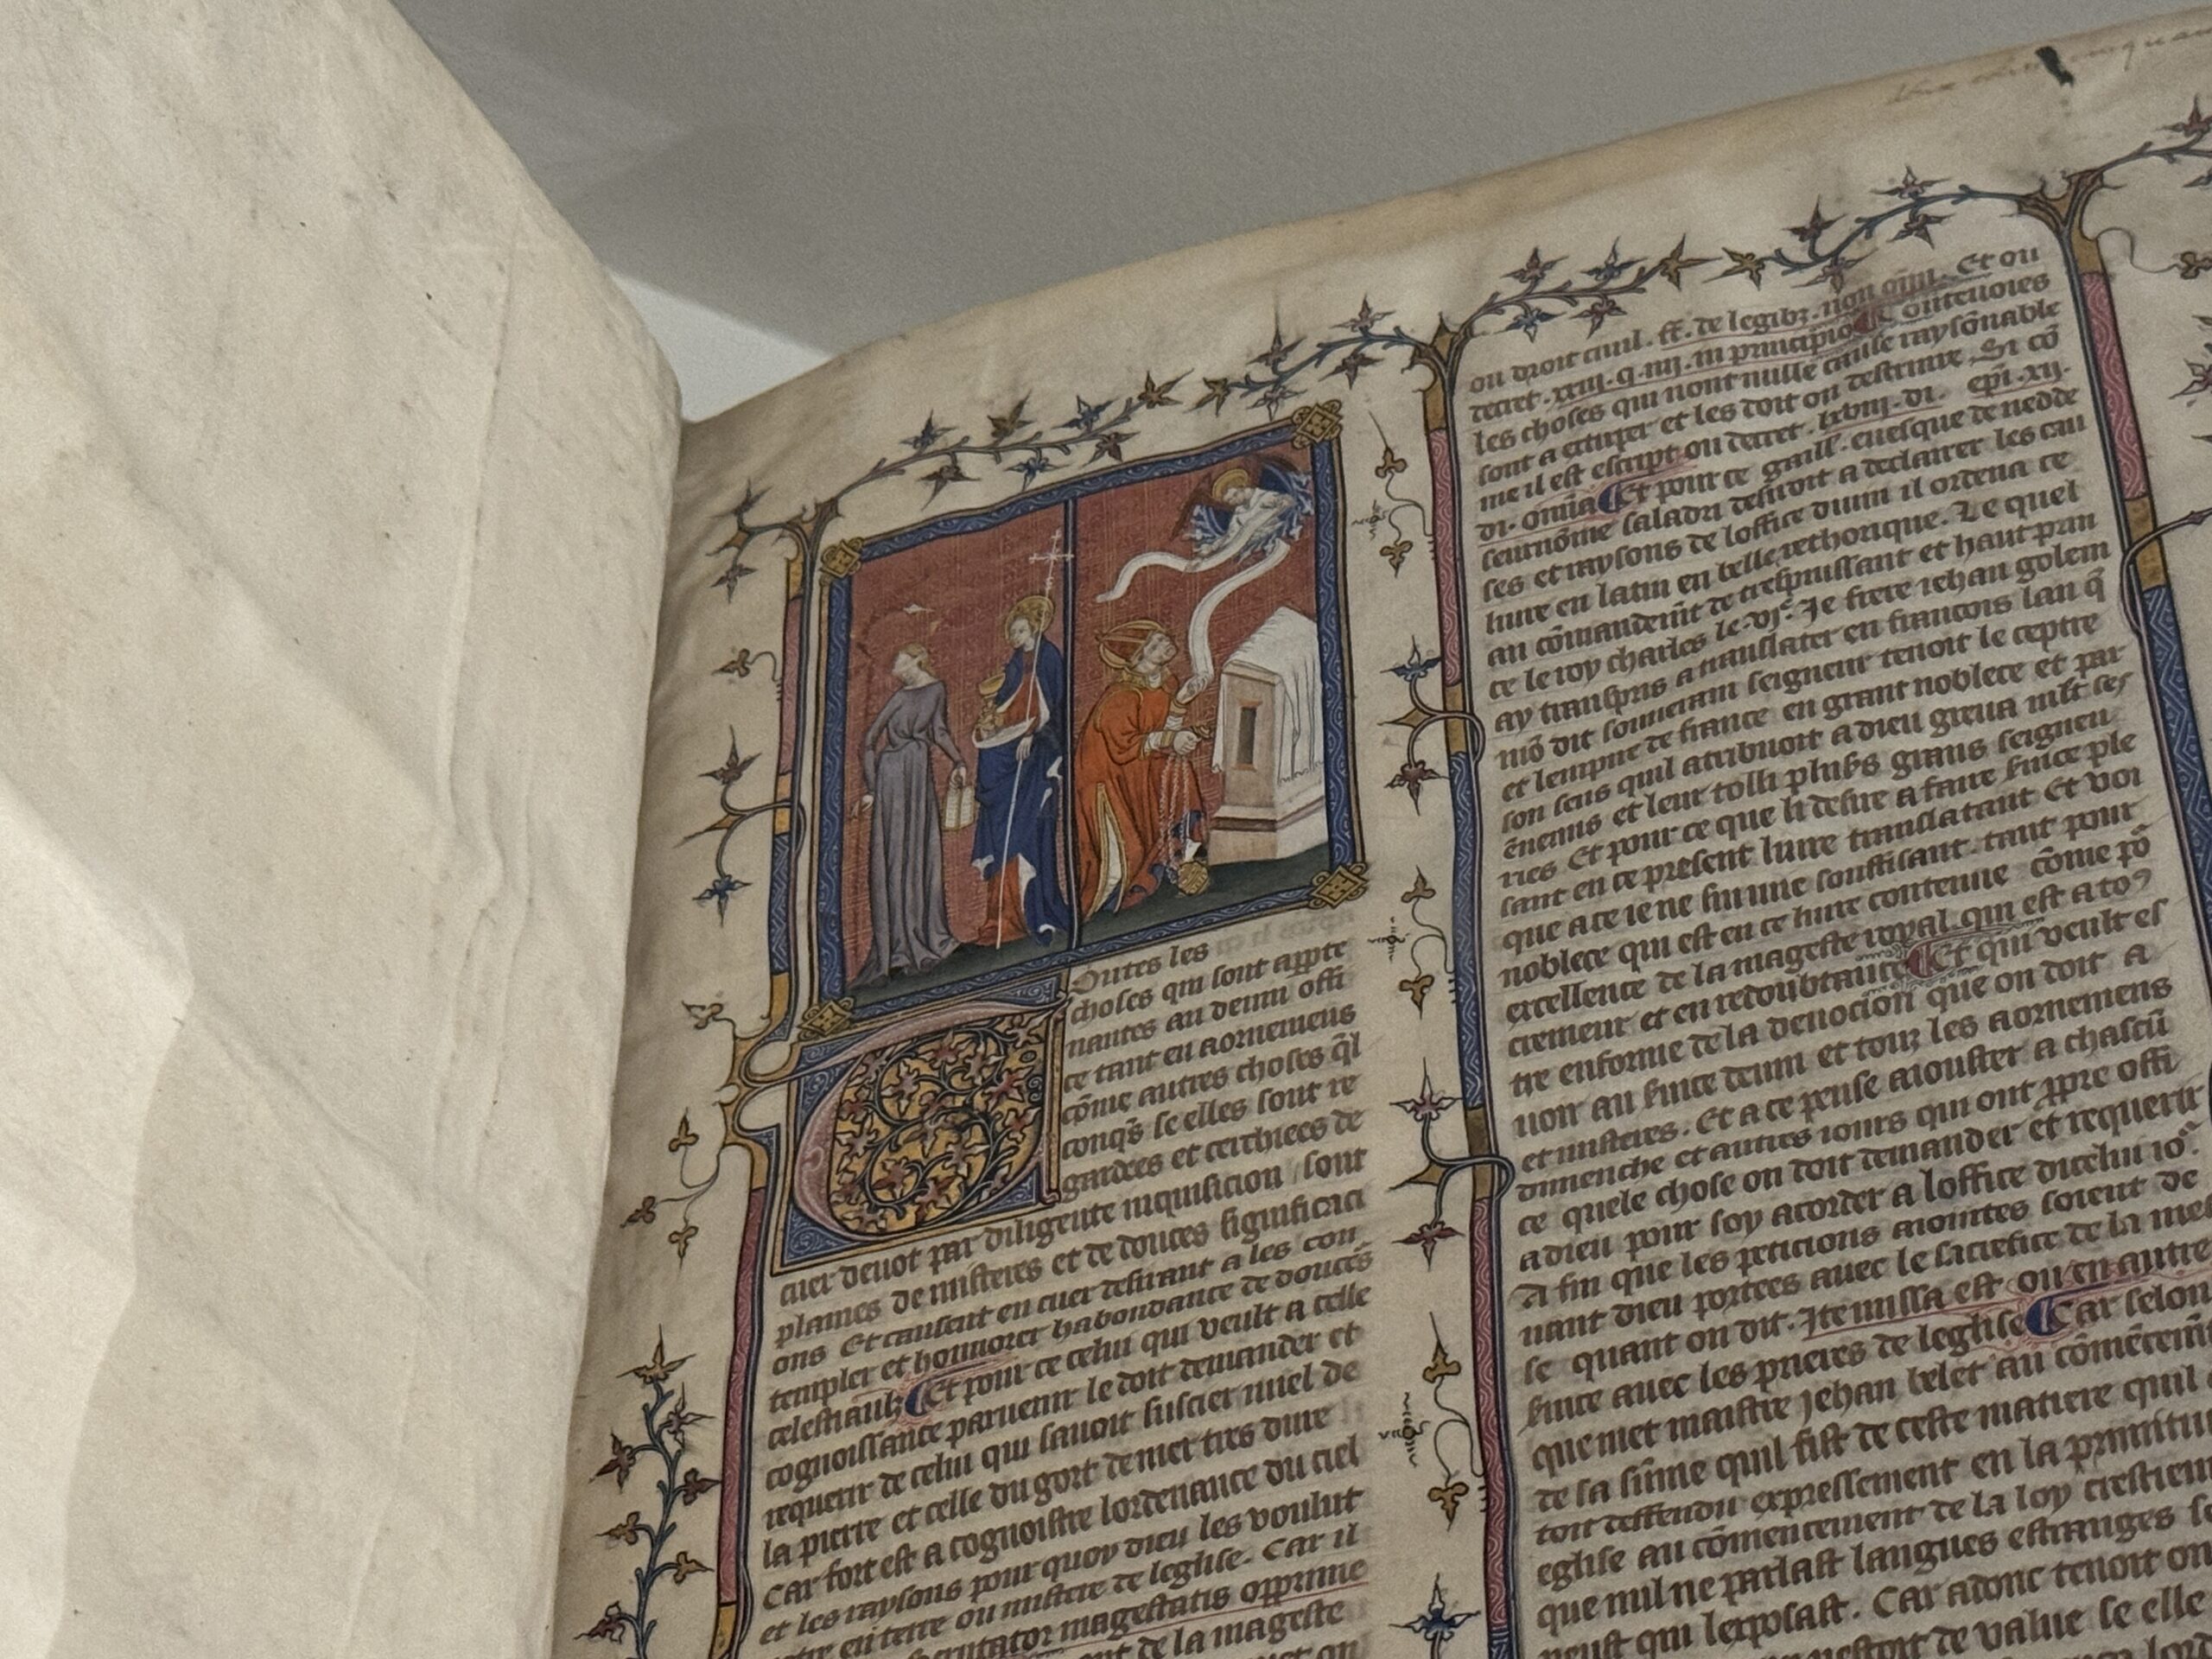 Toutes les
choses qui sont apꝑte
nantes au deuin offi
ce tant en aornemens
cõme autres choses q̃l
conqs̃ se elles sont re
gardees et cerchiees de
cuer deuot par diligente inquisicion sont
plaines de misteres et de douces significaci
ons Et causent en cuer desirant a les con
templer et honnorer habondance de douces
celestiaulz Et pour ce celui qui veult a celle
cognoissance paruenir le doit demander et
requerir de celui qui sauoit suscier miel de
la pierre et celle du gort de mer tres dure
Car fort est a cognoistre lordenance du ciel
et les raysons pour quoy dieu les voulut
en terre ou mistere de leglise. Car il
scrutator magestatis opprime
de la mageste
ou droit ciuil. ff. de legibz. non oĩm. Et ou
decret. xxiii. q. iiii. in principio
les choses qui nont nulle cause raysõnable
sont a extirper et les doit on destruire. Si cõ
me il est escript ou decret. lxviii. di. epĩ. xii.
di. omĩa Et pour ce gaill. euesque de
seurnõme saladri desiroit a declairer les cau
ses et raysons de loffice diuin il ordena ce
liure en latin en belle rethorique. Le quel
au cõmandemẽt de trespuissant et haut prin
ce le roy charles le .vͤ. Je frere iehan golem
ay transpris a translater en francois lan q̃
mõ dit souuerain seigneur tenoit le ceptre
et lempire de france en grant noblece et par
son sens quil atribuoit a dieu greua mlt ses
ẽnemis et leur tolli pluss grans seigneu
ries Et pour ce que li desire a faire suice ple
sant en ce present liure translatant Et voi
que a ce ie ne sui mie souffisant. tant pour
noblece qui est en ce liure contenue cõme põ
excellence de la mageste royal. qui est a to9
cremeur et en redoubtance Et qui veult es
tre enforme de la deuocion que on doit a
uoir au suice deuin et touz les aornemens
et misteres. Et a ce pense aiouster a chascũ
dimenche et autres iours qui ont ꝓpre offi
ce quele chose on doit demander et requerir
a dieu pour soy acorder a loffice dicelui io᷑.
A fin que les peticions aiointes soient de
uant dieu portees auec le sacrefice de la mes
se quant on dit. Ite missa est ou en autre
suice auec les prieres de leglise Car selon
que met maistre Jehan belet au cõmẽcemẽt
de sa sũme quil fist de ceste matiere quil
toit deffendu expressement en la primitiu
eglise au cõmencement de la loy crestien
que nul ne parlast langues estranges
neust qui lexposast. Car adonc tenoit on
de value se elle